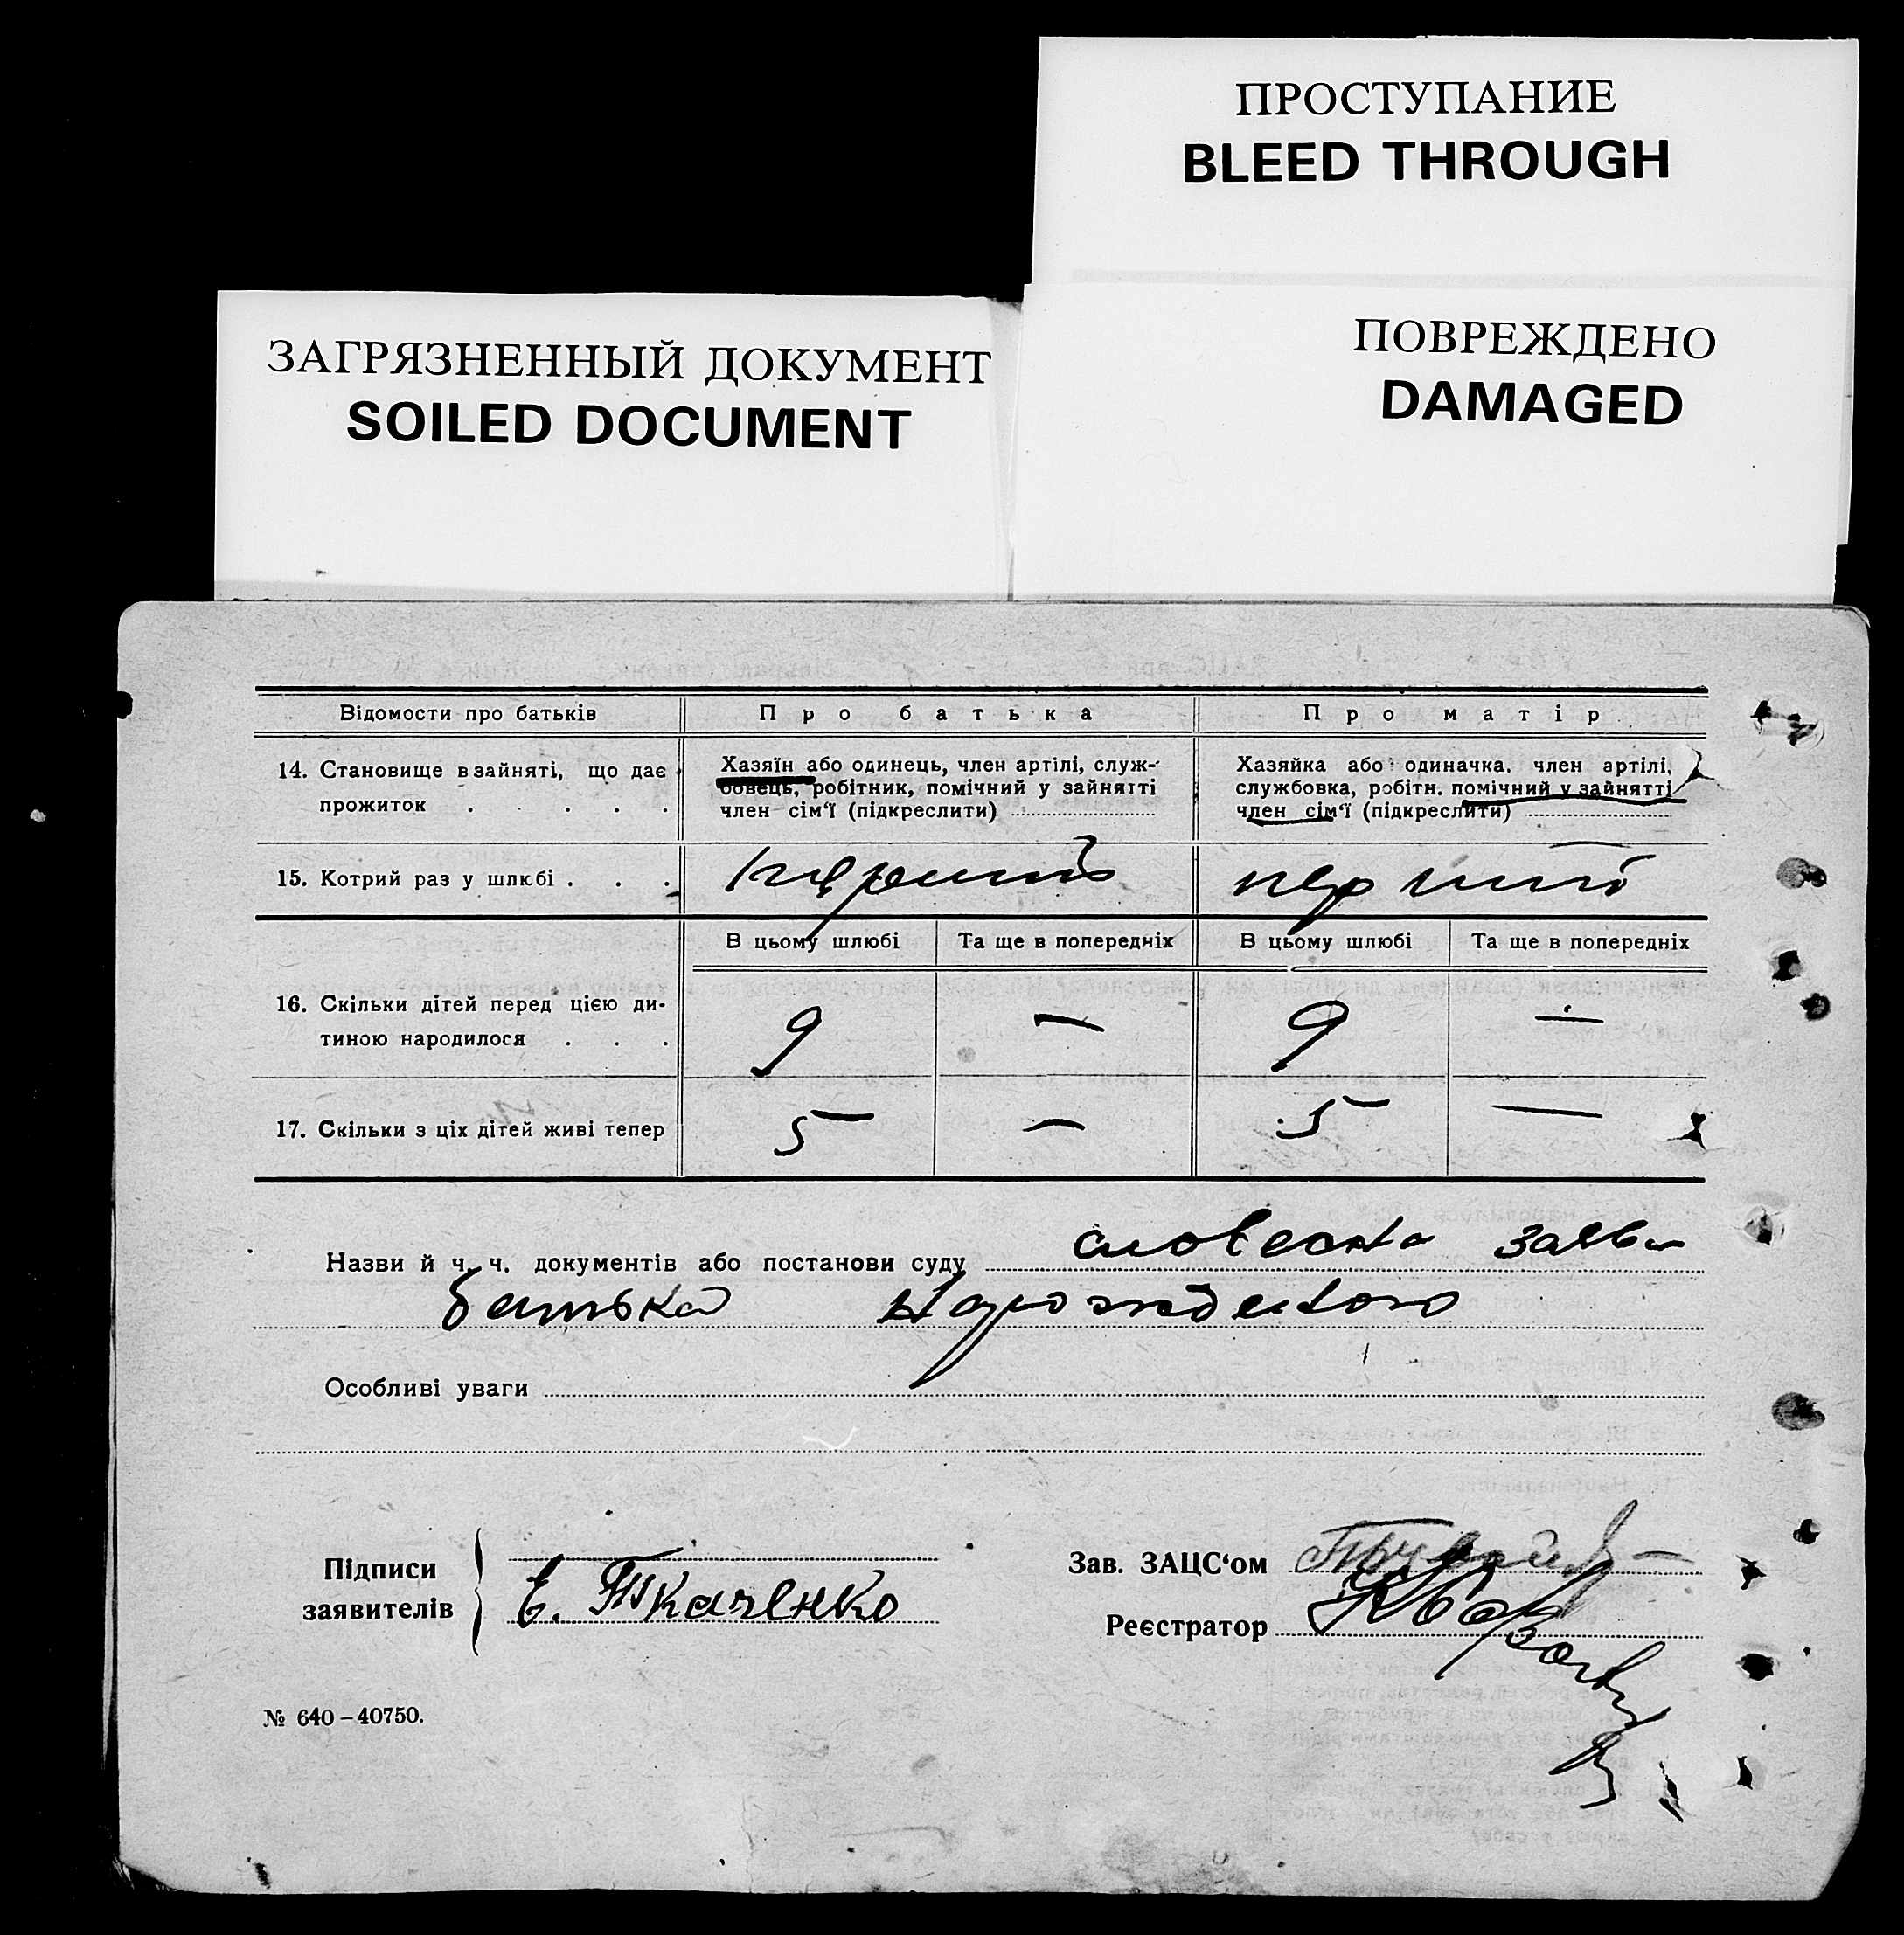 ПРОСТУПАНИЕ
BLEED THROUGH
ПОВРЕЖДЕНО
DAMAGED
ЗАГРЯЗНЕННЫЙ ДОКУМЕНТ
SOILED DOCUMENT
Відомости про батьків Про батька Про матір
14. Становище в зайняті, що дає прожиток . . . . .
Хазяїн або одинець, член артілі, служ-
бовець, робітник, помічний у зайнятті
член сім'ї (підкреслити)
Хазяйка або одиначка. член артілі,
службовка, робітн. помічний у зайнятті
член сім'ї (підкреслити)
15. Котрий раз у шлюбі . . . перший перший
В цьому шлюбі Та ще в попередніх В цьому шлюбі Та ще в попередніх
16. Скільки дітей перед цією ди-
тиною народилося . . . 9 — 9 —
17. Скільки з ціх дітей живі тепер 5 — 5 —
Назви й ч. ч. документів або постанови суду словесна заява
батька
Особливі уваги
Підписи
заявителів
Е. Ткаченко
Зав. ЗАЦС'ом
Реєстратор
№ 640-40750.